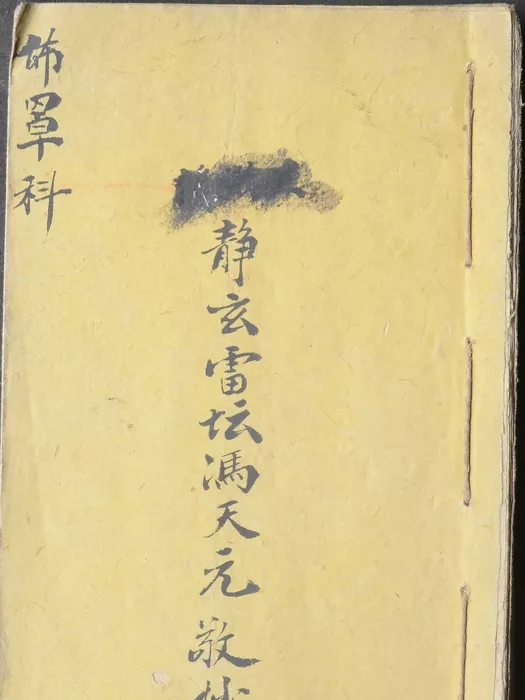 佈罩科
静玄雷坛馮天元敬抄